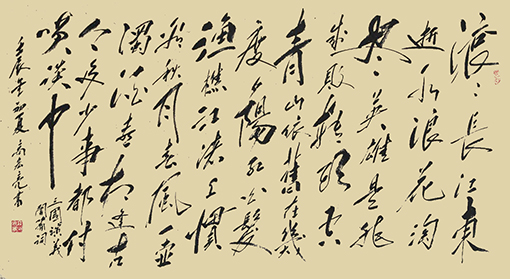 滚〻長江東
逝水浪花淘
尽英雄是非
成敗轉頭空
青山依舊在幾
度夕陽紅白髮
漁樵江渚上慣
看秋月春風一壺
濁酒喜相逢古
今多少事都付
笑談中
三國演義
開篇詞
壬辰年初夏